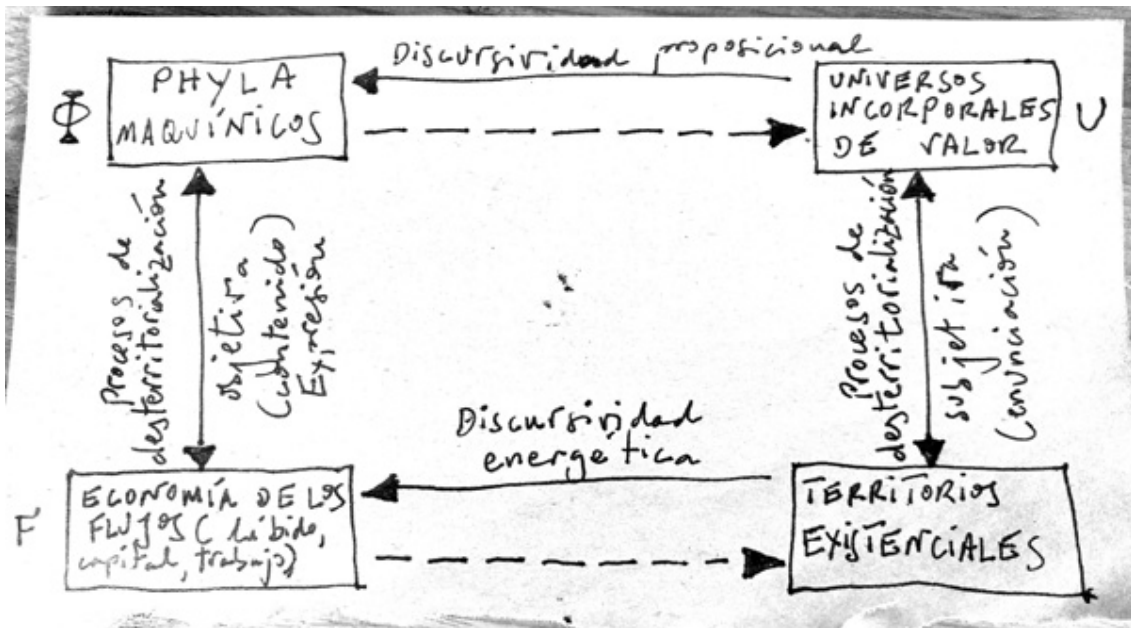 Discursividad proposicional
Φ
PHYLA
MAQUÍNICOS
UNIVERSOS
INCORPORALES
DE VALOR
U
Procesos de
desterritorialización
objetiva
(contenido)
Expresión
Procesos de
desterritorialización
subjetiva
(enunciación)
Discursividad
energética
F
ECONOMÍA DE LOS
FLUJOS (libido,
capital, trabajo)
TERRITORIOS
EXISTENCIALES